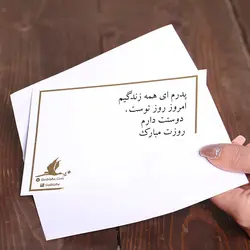 پدرم ای همه زندگیم
امروز روز توست.
دوستت دارم
روزت مبارک